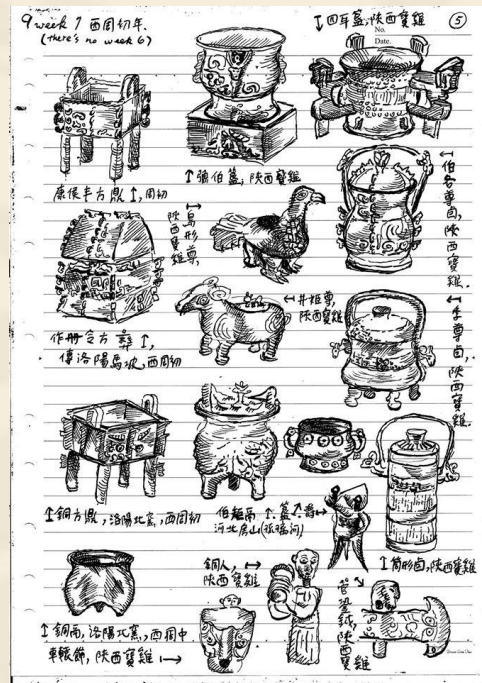 week 7 西周初年.
(there's no week 6)
↕四耳簋,陝西寶雞
No.
Date.
⑤
康侯丰方鼎↑,周初
↑強伯簋,陝西寶雞
←伯各尊卣,陝西寶雞.
鳥形尊,陝西寶雞
←井姬尊,陝西寶雞
←季尊卣,陝西寶雞.
作册令方彝↑,
傳洛陽馬坡,西周初
↕銅方鼎,洛陽北窯,西周初
伯矩鬲↑.簋↗.爵↦
河北房山(琉璃河)
↑筒形卣,陝西寶雞
銅人,↦
陝西寶雞
↕銅鬲,洛陽北窯,西周中
陝西寶雞